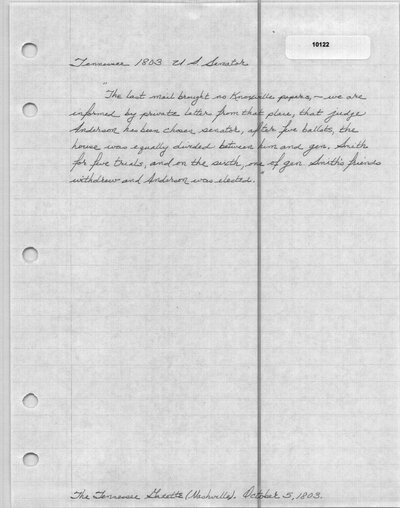 10122
Tennessee 1803 U.S. Senator
"The last mail brought no Knoxville papers, — we are
informed by private letters from that place, that judge
Anderson has been chosen senator, after five ballots, the
house was equally divided between him and gen. Smith
for five trials, and on the sixth, one of gen. Smith's friends
withdrew and Anderson was elected."
The Tennessee Gazette (Nashville). October 5, 1803.